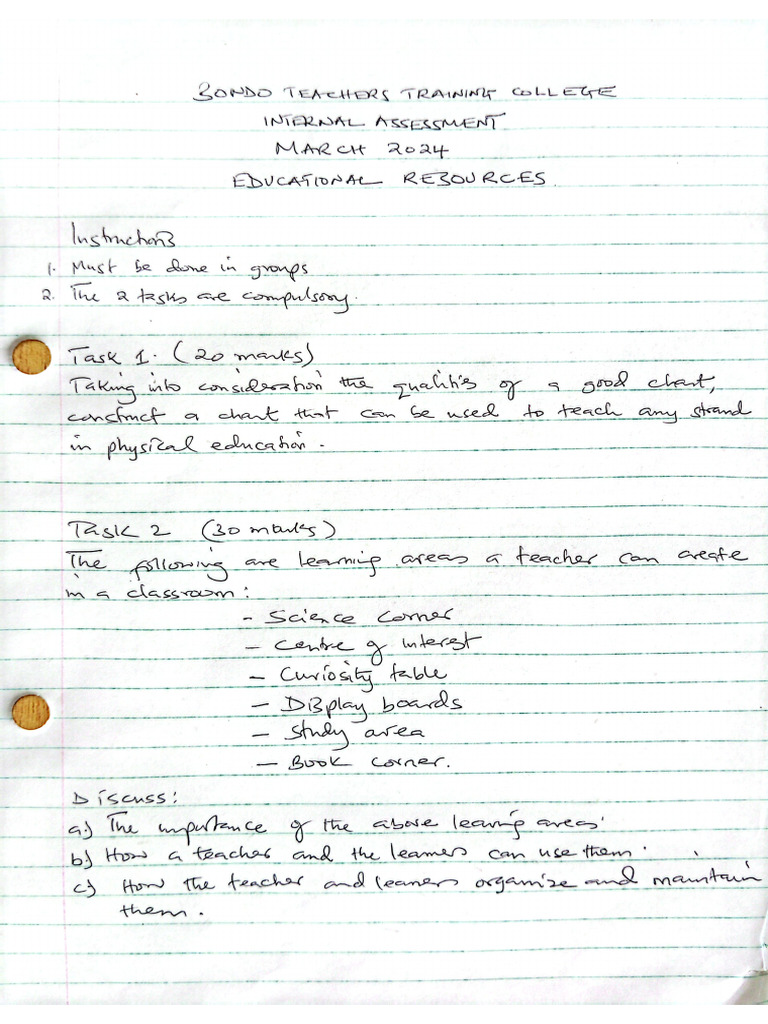 BONDO TEACHERS TRAINING COLLEGE
INTERNAL ASSESSMENT
MARCH 2024
EDUCATIONAL RESOURCES.
Instructions
1. Must be done in groups
2. The 2 tasks are compulsory.
Task 1. (20 marks)
Taking into consideration the qualities of a good chart,
construct a chart that can be used to teach any strand
in physical education.
Task 2 (30 marks)
The following are learning areas a teacher can create
in a classroom:
- Science corner
- Centre of interest
- Curiosity table
- Display boards
- Study area
- Book corner.
Discuss:
a) The importance of the above learning areas.
b) How a teacher and the learners can use them.
c) How the teacher and learners organize and maintain
them.